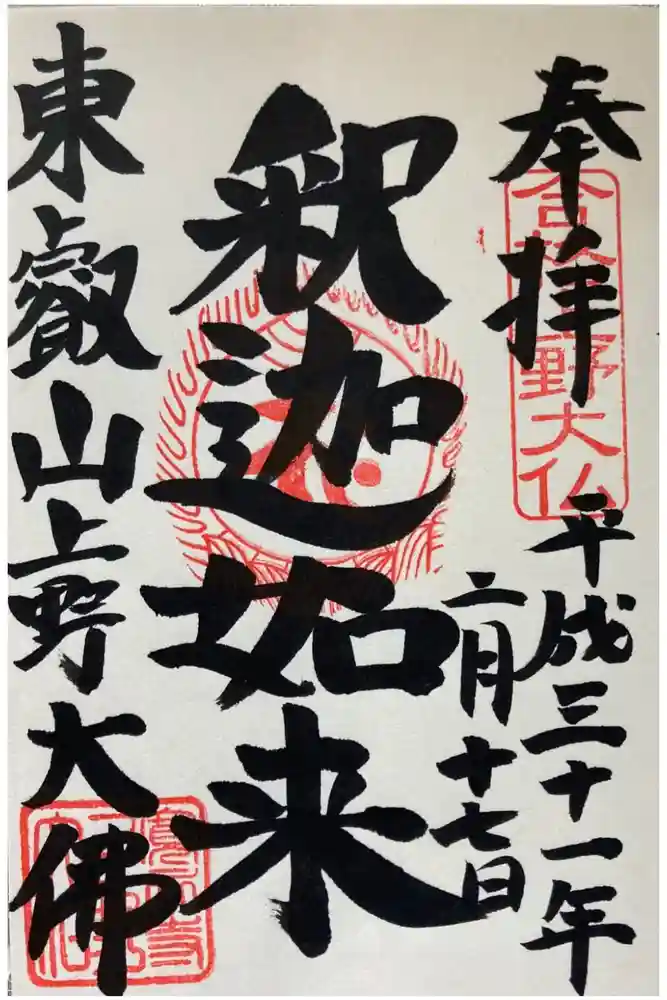 奉拝
合格上野大仏
平成三十一年
二月十七日
釈迦如来
東叡山上野大佛